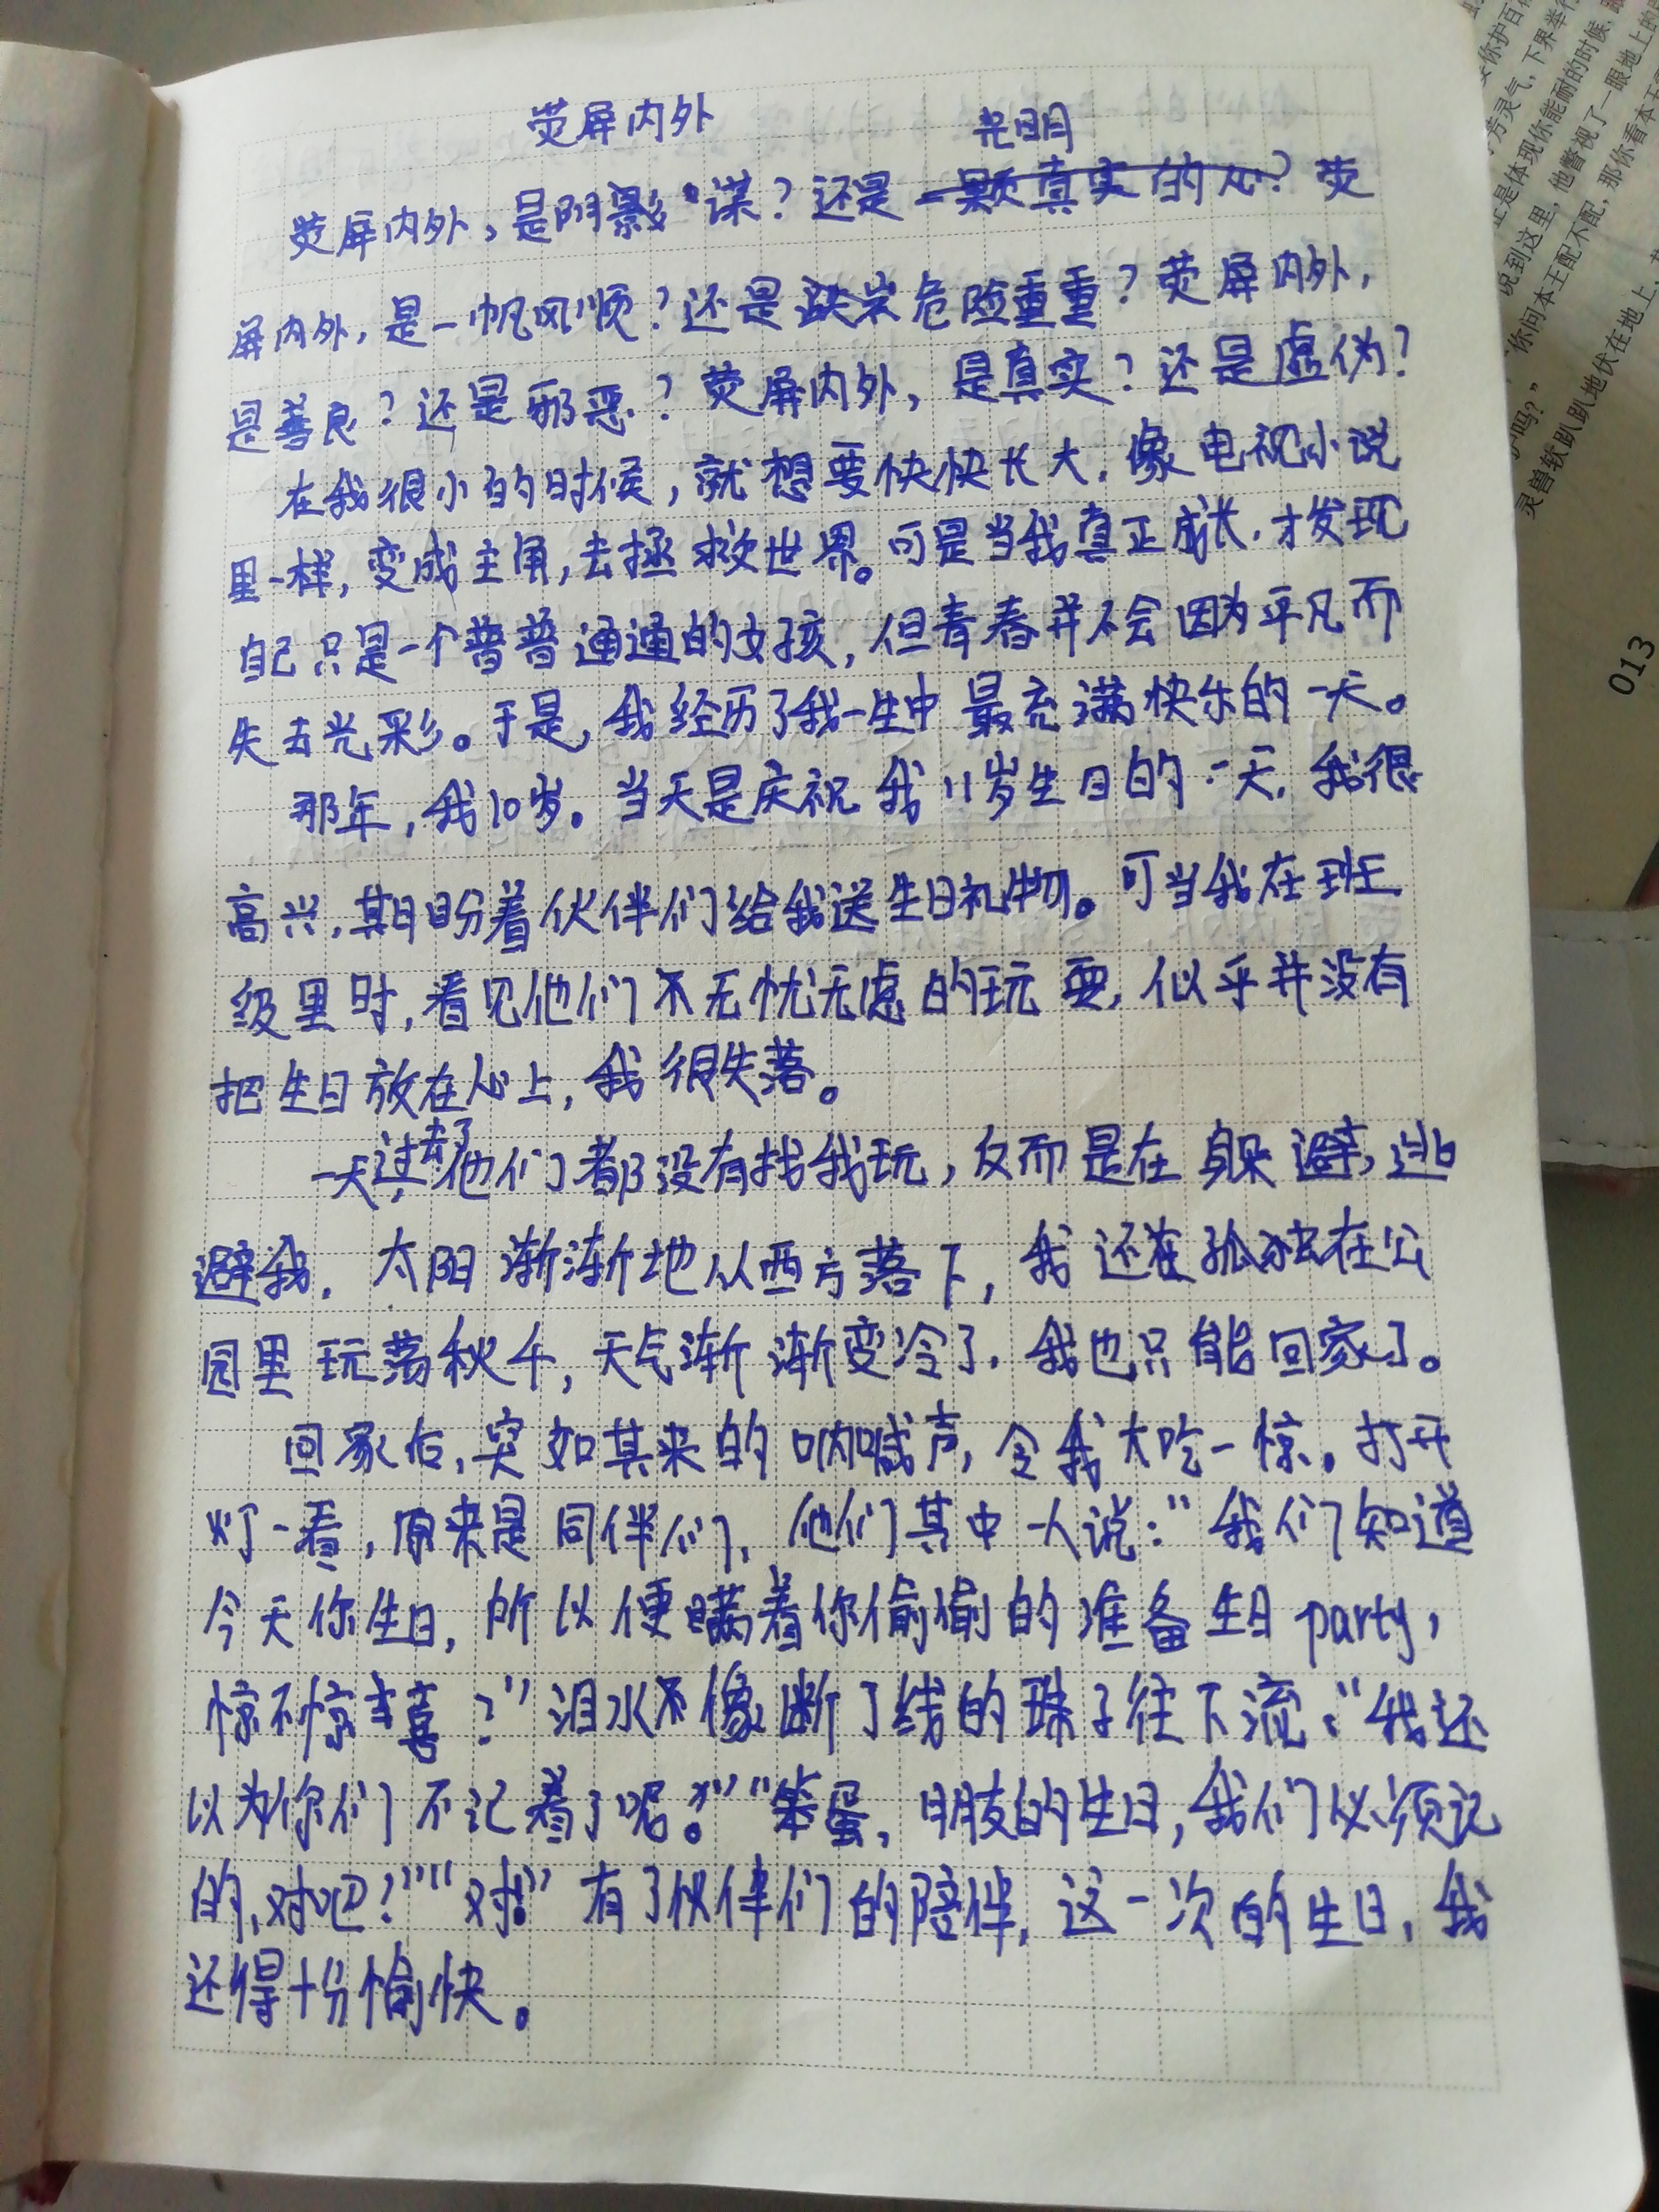 荧屏内外
光明
荧屏内外，是阴影谋？还是一颗真实的心？荧
屏内外，是一帆风顺？还是危险重重？荧屏内外，
是善良？还是邪恶？荧屏内外，是真实？还是虚伪？
在我很小的时候，就想要快快长大，像电视小说
里一样，变成主角，去拯救世界。可是当我真正成长，才发现
自己只是一个普普通通的女孩，但青春并不会因为平凡而
失去光彩。于是，我经历了我一生中最充满快乐的一天。
那年，我10岁。当天是庆祝我11岁生日的一天，我很
高兴，期盼着伙伴们给我送生日礼物。可当我在班
级里时，看见他们不无忧无虑的玩耍，似乎并没有
把生日放在心上，我很失落。
一天过去了他们都没有找我玩，反而是在躲避，逃
避我，太阳渐渐地从西方落下，我还在孤独在公
园里玩荡秋千，天气渐渐变冷了，我也只能回家了。
回家后，突如其来的呐喊声，令我大吃一惊。打开
灯一看，原来是同伴们，他们其中一人说：“我们知道
今天你生日，所以便瞒着你偷偷的准备生日party，
惊不惊喜？”泪水不像断了线的珠子往下流：“我还
以为你们不记着了呢。”“笨蛋，朋友的生日，我们必须记
的，对吧？”“对！”有了伙伴们的陪伴，这一次的生日，我
还得十份愉快。
你护百
芳灵气，下界举行
正是体现你能耐的时候，
说到这里，他瞥视了一眼地上的
你问本王配不配，那你看本王
护吗？”
灵兽软趴趴地伏在地上，
013